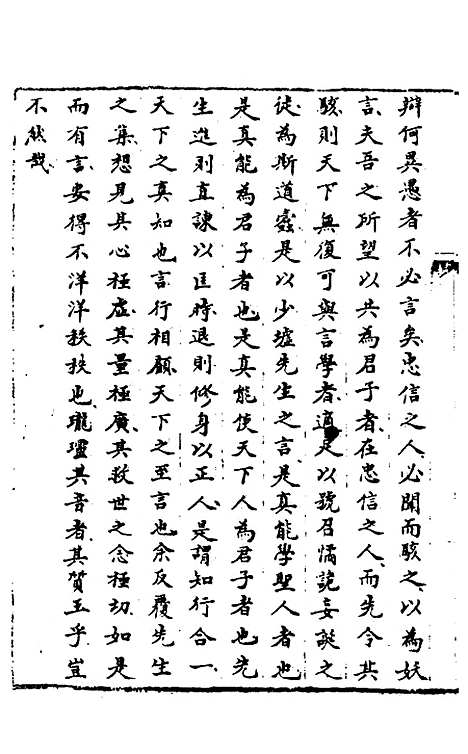 辯何異愚者不必言矣忠信之人必聞而駭之以為妖
言夫吾之所望以共為君子者在忠信之人而先令其
駭則天下無復可與言學者適足以號召憍詭妄誕之
徒為斯道蠹是以少墟先生之言是真能學聖人者也
是真能為君子者也是真能使天下人為君子者也先
生進則直諫以匡時退則修身以正人是謂知行合一
天下之真知也言行相顧天下之至言也余反覆先生
之集想見其心極虛其量極廣其救世之念極切如是
而有言安得不洋洋秩秩也瓏璮其音者其質玉乎豈
不然哉